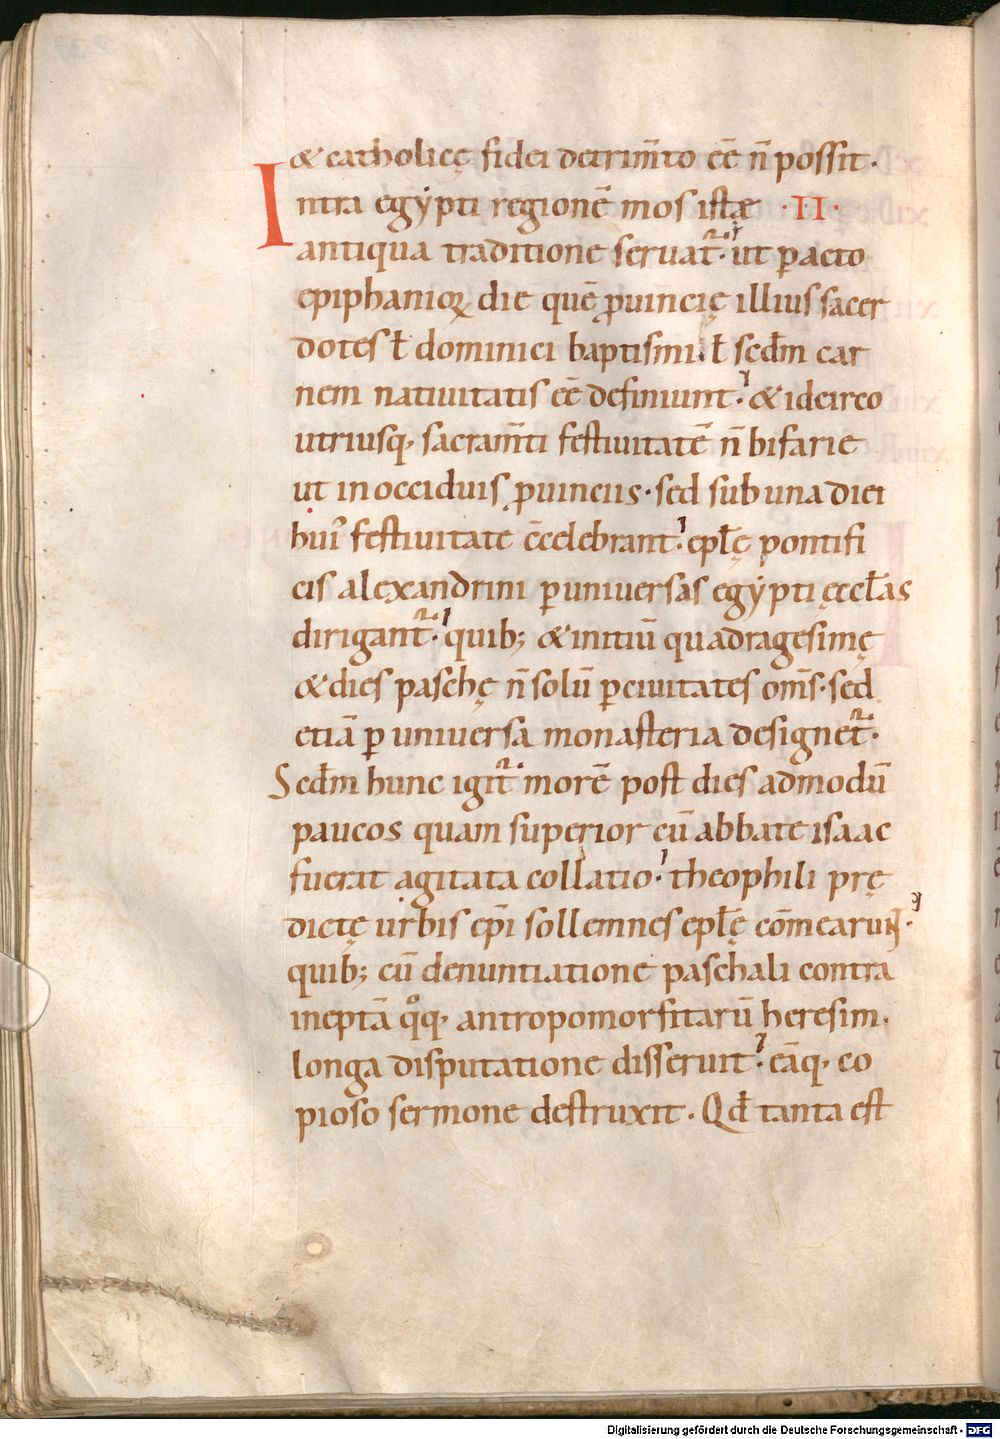 & catholicę fidei detrim̅to eē n̅ possit·
Intra egẏpti regionē mos istę ·II·
antiqua traditione seruat᷑· ut ꝑacto
epiphanioꝝ die quē ꝓuincię illius sacer
dotes ƚ dominici baptismi ƚ scđm car
nem natiuitatis eē definiunt· & idcirco
utriusq· sacram̅ti festiuitatē n̅ bifarie
ut in occiduis ꝓuinciis· sed sub una diei
hui᾽ festiuitate c̄celebrant· epƚę pontifi
cis alexandrini ꝑ uniuersas egẏpti ęccƚas
dirigant᷑· quib; & initiū quadragesimę
& dies paschę n̅ solū ꝑ ciuitates om̅s· sed
etiā ꝑ uniuersa monasteria designet᷑·
Scđm hunc igit᷑ morē post dies admodū
paucos quam superior cū abbate isaac
fuerat agitata collatio· theophili prę
dictę urbis ep̅i sollemnes epƚę cōmearunt·
quib; cū denuntiatione paschali contra
ineptā qͦq· antropomorfitarū heresim·
longa disputatione disseruit· eāq· co
pioso sermone destruxit· Qđ tanta est
Digitalisierung gefördert durch die Deutsche Forschungsgemeinschaft - DFG